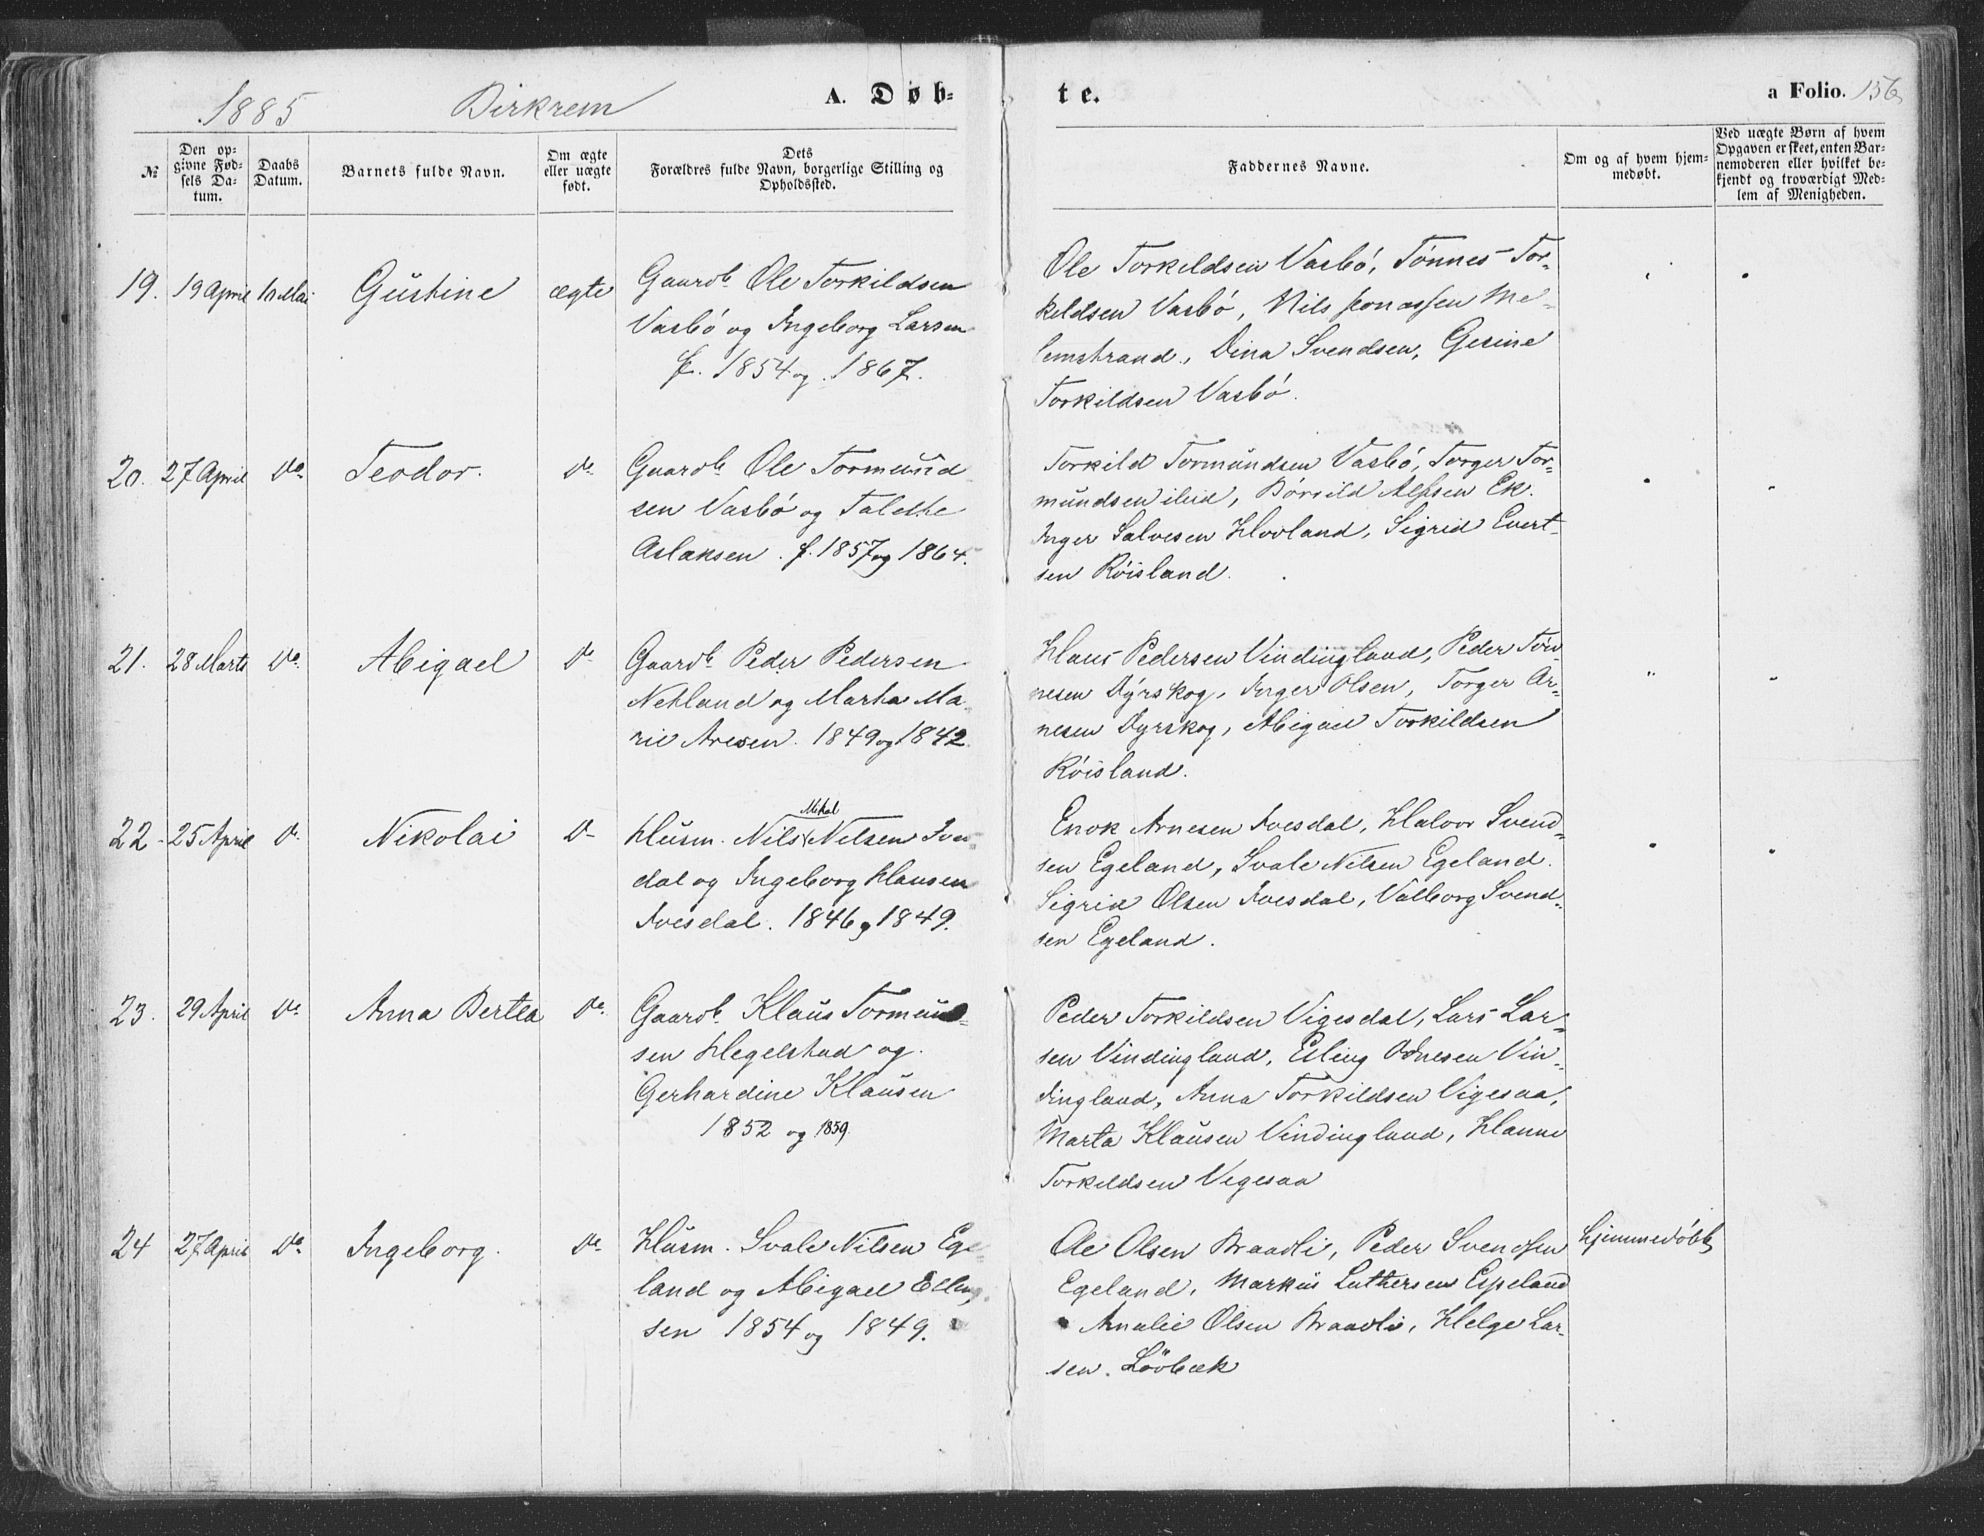 1885 Birkrem A. Døb-
te. a Folio. 156
№
Den op-
givne Fød-
sels Da-
tum.
Daabs
Datum.
Barnets fulde Navn.
Om ægte
eller uægte
født.
Dets
Forældres fulde Navn, borgerlige Stilling og
Opholdssted.
Faddernes Navne.
Om og af hvem hjem-
medøbt.
Ved uægte Børn af hvem
Opgaven er skeet, enten Bar-
nemoderen eller hvilket be-
kjendt og troværdigt Med-
lem af Menigheden.
19. 19 April 10 Mai Gustine ægte
Gaardb. Ole Torkildsen
Vasbö og Ingeborg Larsen
f. 1854 og 1867.
Ole Torkeldsen Vasbö, Tönnes Tor-
keldsen Vasbö, Nils Jonassen Me-
lemstrand, Dina Svendsen, Gesine
Torkildsen Vasbö.
20. 27 April Do. Teodor. Do.
Gaardb. Ole Tormund
sen Vasbö og Talethe
Aslaksen. f. 1857 og 1864.
Torkild Tormundsen Vasbö, Torger Tor-
mundsen ibid, Börild Alfsen Ek.
Inger Salvesen Hovland, Sigrid Evert-
sen Röisland.
21. 28 Marts Do. Abigael Do
Gaardb. Peder Pedersen
Netland og Martha Ma-
rie Aresen. 1849 og 1842.
Hans Pedersen Vindingland, Peder Tön-
nesen Dyrskog, Inger Olsen, Torger Ar-
nesen Dyrskog, Abigael Torkildsen
Röisland.
22 25 April Do. Nikolai Do
Husm. Nils Mikal Nilsen Ives-
dal og Ingeborg Hansen
Ivesdal. 1846 og 1849.
Enok Arnesen Ivesdal, Halvor Svend-
sen Egeland, Svale Nilsen Egeland.
Sigrid Olsen Ivesdal, Valborg Svend-
sen Egeland.
23. 29 April Do. Anna Bertea Do.
Gaardb. Klaus Tormund-
sen Hegelstad og
Gerhardine Klausen
1852 og 1859.
Peder Torkildsen Vigesdal, Lars Lar-
sen Vindingland, Esling Ådnesen Vin-
dingland, Anna Torkildsen Vigesaa,
Marta Klausen Vindingland, Hanne
Torkeldsen Vegesaa
24 27 April Do. Ingeborg. Do.
Husm. Svale Nilsen Ege-
land og Abigael Elling-
sen 1854 og 1849.
Ole Olsen Braadli, Peder Svendsen
Egeland, Markus Luthersen Espeland
Amalie Olsen Braadli, Helge Lar-
sen. Lövbæk
hjemmedöbt